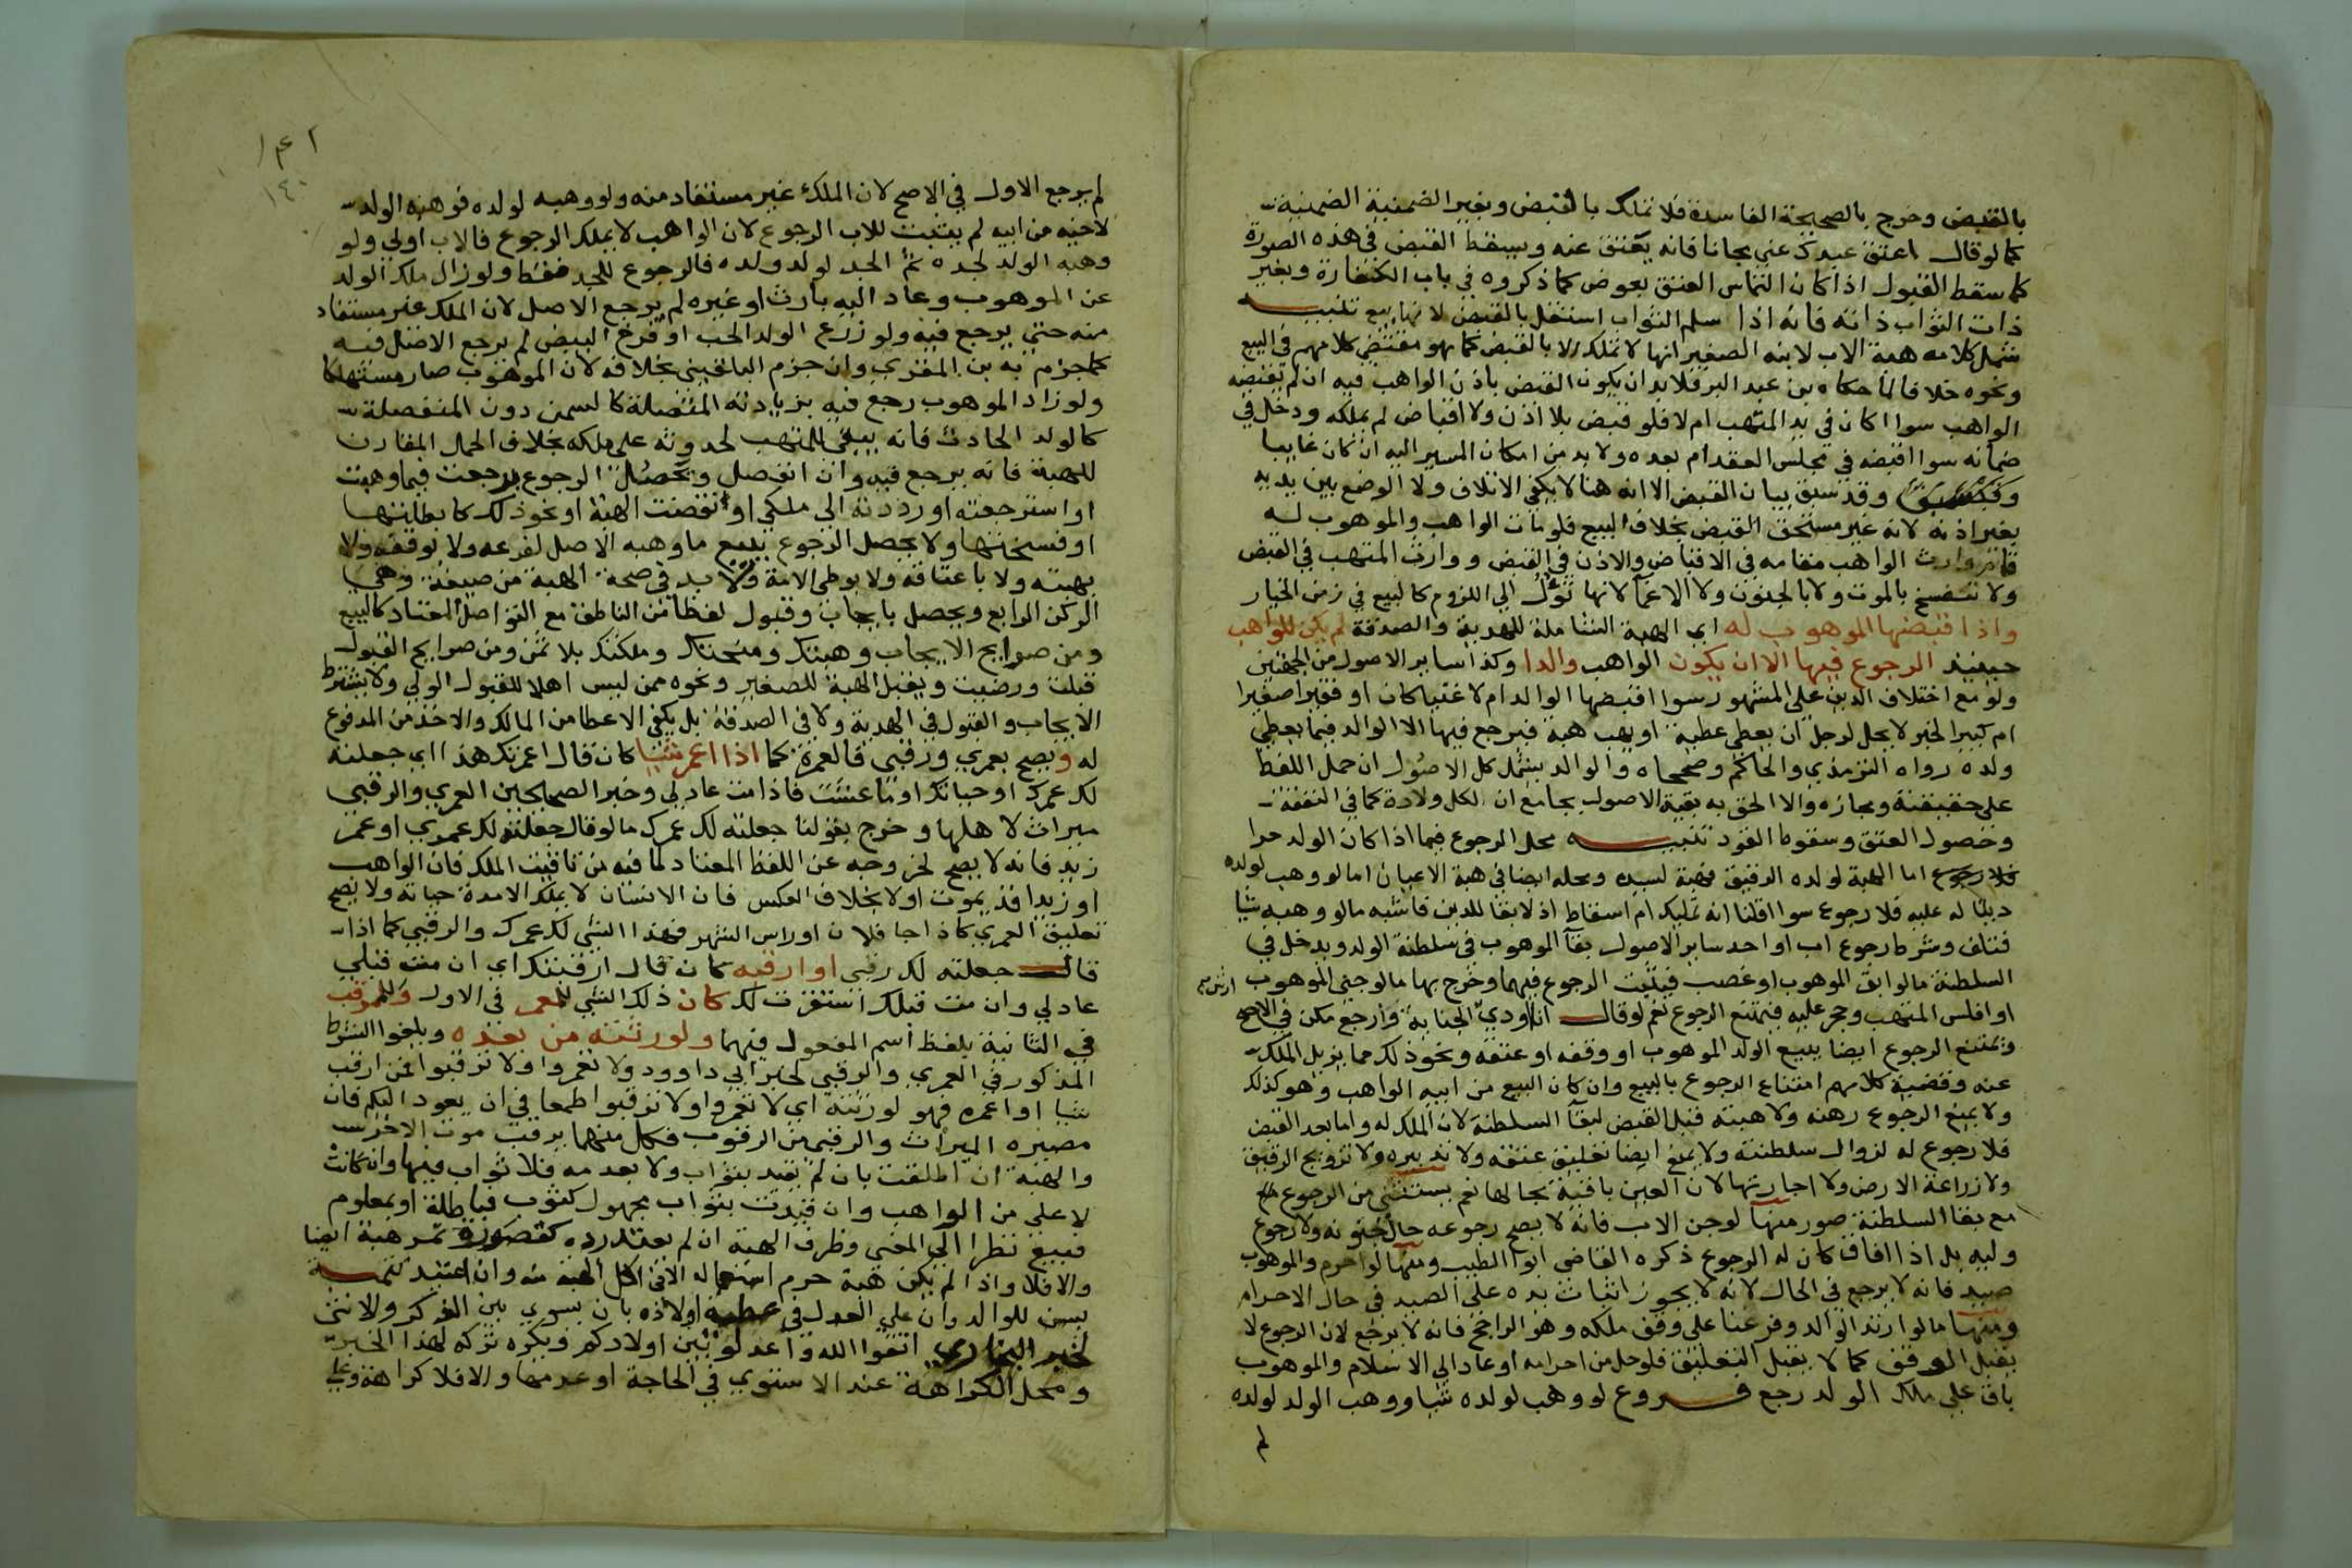 بالقبض وخرج بالصحيحة الفاسدة فلا تملك بالقبض وبغير الضمنية الضمنية
كما لو قال اعتق عبدك عني مجانا فانه يعتق عنه ويسقط القبض في هذه الصورة
كما سقط القبول اذا كان التماس العتق بعوض كما ذكروه في باب الكفارة وبغير
ذات الثواب ذاته فانه اذا سلم الثواب استقل بالقبض لانها بيع تنبيه
شمل كلامه هبة الاب لابنه الصغير انها لا تملك الا بالقبض كما هو مقتضى كلامهم في البيع
ونحوه خلافا لما حكاه بن عبد البر فلا بد ان يكون القبض باذن الواهب فيه ان لم يقبضه
الواهب سوا اكان في يد المتهب ام لا فلو قبض بلا اذن ولا اقباض لم يملكه ودخل في
ضمانه سوا اقبضه في مجلس العقد ام بعده ولا بد من امكان المسير اليه ان كان غايبا
وقد سبق بيان القبض الا انه هنا لا يكفي الاتلاف ولا الوضع بين يديه
بغير اذنه لانه غير مستحق القبض بخلاف البيع فلو مات الواهب والموهوب له
قام وارث الواهب مقامه في الاقباض والاذن في القبض ووارث المتهب في القبض
ولا تنفسخ بالموت ولا بالجنون ولا الاغما لانها تؤل الى اللزوم كالبيع في زمن الخيار
واذا قبضها الموهوب له اي الهبة الشاملة للهدية والصدقة لم يكن للواهب
حينئذ الرجوع فيها الا ان يكون الواهب والدا وكذا ساير الاصول من الجهتين
ولو مع اختلاف الدين على المشهور سوا اقبضها الوالد ام لا غنيا كان او فقيرا صغيرا
ام كبيرا لخبر لا يحل لرجل ان يعطي عطية او يهب هبة فيرجع فيها الا الوالد فيما يعطي
ولده رواه الترمذي والحاكم وصححاه والوالد يشمل كل الاصول ان حمل اللفظ
على حقيقته ومجازه والا الحق به بقية الاصول بجامع ان لكل ولادة كما في النفقة
وحصول العتق وسقوط القود تنبيه محل الرجوع فيما اذا كان الولد حرا
اما الهبة لولده الرقيق فهبة لسيده ومحله ايضا في هبة الاعيان اما لو وهب لولده
دينا له عليه فلا رجوع سوا اقلنا انه تمليك ام اسقاط اذ لا بقا للدين فاشبه ما لو وهبه شيا
فتلف وشرط رجوع اب او احد ساير الاصول بقآ الموهوب في سلطنة الولد ويدخل في
السلطنة ما لو ابق الموهوب او غصب فيثبت الرجوع فيهما وخرج بها ما لو جنى الموهوب
او افلس المتهب وحجر عليه فيمتنع الرجوع نعم لو قال انا اودي ارش الجناية وارجع مكن في الاصح
ويمتنع الرجوع ايضا ببيع الولد الموهوب او وقفه او عتقه ونحو ذلك مما يزيل الملك
عنه وقضية كلامهم امتناع الرجوع بالبيع وان كان البيع من ابيه الواهب وهو كذلك
ولا يمنع الرجوع رهنه ولا هبته قبل القبض لبقآ السلطنة لان الملك له واما بعد القبض
فلا رجوع له لزوال سلطنته ولا يمنع ايضا تعليق عتقه ولا تدبيره ولا تزويج الرقيق
ولا زراعة الارض ولا اجارتها لان العين باقية بحالها نعم يستثنى من الرجوع
مع بقا السلطنة صور منها لو جن الاب فانه لا يصح رجوعه حال جنونه ولا رجوع
وليه بل اذا افاق كان له الرجوع ذكره القاضي ابو الطيب ومنها لو احرم والموهوب
صيد فانه لا يرجع في الحال لانه لا يجوز اثبات يده على الصيد في حال الاحرام
ومنها ما لو ارتد الوالد وفرعنا على وقف ملكه وهو الراجح فانه لا يرجع لان الرجوع لا
يقبل الوقف كما لا يقبل التعليق فلو حل من احرامه او عاد الى الاسلام والموهوب
باق على ملك الولد رجع فروع لو وهب لولده شيا ووهب الولد لولده
لم
١٤٠
لم يرجع الاول في الاصح لان الملك غير مستفاد منه ولو وهبه لولده فوهبه الولد
لاخيه من ابيه لم يثبت للاب الرجوع لان الواهب لا يملك الرجوع فالاب اولى ولو
وهبه الولد لجده ثم الجد لولد ولده فالرجوع للجد فقط ولو زال ملك الولد
عن الموهوب وعاد اليه بارث او غيره لم يرجع الاصل لان الملك غير مستفاد
منه حتى يرجع فيه ولو زرع الولد الحب او فرخ البيض لم يرجع الاصل فيه
كما جزم به بن المقري وان جزم البلقيني بخلافه لان الموهوب صار مستهلكا
ولو زاد الموهوب رجع فيه بزيادته المتصلة كالسمن دون المنفصلة
كالولد الحادث فانه يبقى للمتهب لحدوثه على ملكه بخلاف الحمل المقارن
للهبة فانه يرجع فيه وان انفصل ويحصل الرجوع برجعت فيما وهبت
او استرجعته او رددته الى ملكي او نقضت الهبة او نحو ذلك كابطلتها
او فسختها ولا يحصل الرجوع ببيع ما وهبه الاصل لفرعه ولا بوقفه ولا
بهبته ولا باعتاقه ولا بوطى الامة ولا بد في صحة الهبة من صيغة وهي
الركن الرابع ويحصل بايجاب وقبول لفظا من الناطق مع التواصل المعتاد كالبيع
ومن صرايح الايجاب وهبتك ومنحتك وملكتك بلا ثمن ومن صرايح القبول
قبلت ورضيت ويقبل الهبة للصغير ونحوه ممن ليس اهلا للقبول الولي ولا يشترط
الايجاب والقبول في الهدية ولا في الصدقة بل يكفي الاعطا من المالك والاخذ من المدفوع
له ويصح بعمري ورقبى فالعمري كما اذا اعمر شيا كان قال اعمرتك هذا اي جعلته
لك عمرك او حياتك او ما عشت فاذا مت عاد لي وخبر الصحيحين العمري والرقبى
ميراث لاهلها وخرج بقولنا جعلته لك عمرك ما لو قال جعلته لك عمري او عمر
زيد فانه لا يصح لخروجه عن اللفظ المعتاد لما فيه من تاقيت الملك فان الواهب
او زيدا قد يموت اولا بخلاف العكس فان الانسان لا يملك الا مدة حياته ولا يصح
تعليق العمري كاذا جا فلان او راس الشهر فهذا الشي لك عمرك والرقبى كما اذا
قال جعلته لك رقبى او ارقبه كان قال ارقبتك اي ان مت قبلي
عاد لي وان مت قبلك استقرت لك كان ذلك الشي للمعمر في الاول وللمرقب
في الثانية بلفظ اسم المفعول فيهما ولورثته من بعده ويلغوا الشرط
المذكور في العمري والرقبى لخبر ابي داوود ولا تعمروا ولا ترقبوا فمن ارقب
شيا او اعمره فهو لورثته اي لا تعمروا ولا ترقبوا طمعا في ان يعود اليكم فان
مصيره الميراث والرقبى من الرقوب فكل منهما يرقب موت الاخر
والهبة ان اطلقت بان لم تقيد بثواب ولا بعدمه فلا ثواب فيها وان كانت
لاعلى من الواهب وان قيدت بثواب مجهول كثوب فباطلة او بمعلوم
فبيع نظرا الى المعنى وظرف الهبة ان لم يعتد رده كقوصرة تمر هبة ايضا
والا فلا واذا لم يكن هبة حرم استعماله الا في اكل الهبة منه وان اعتيد تتمة
يسن للوالد وان علي العدل في عطية اولاده بان يسوي بين الذكر والانثى
لخبر البخاري اتقوا الله واعدلوا بين اولادكم ويكره تركه لهذا الخبر
ومحل الكراهة عند الاستوي في الحاجة او عدمها والا فلا كراهة وعلي